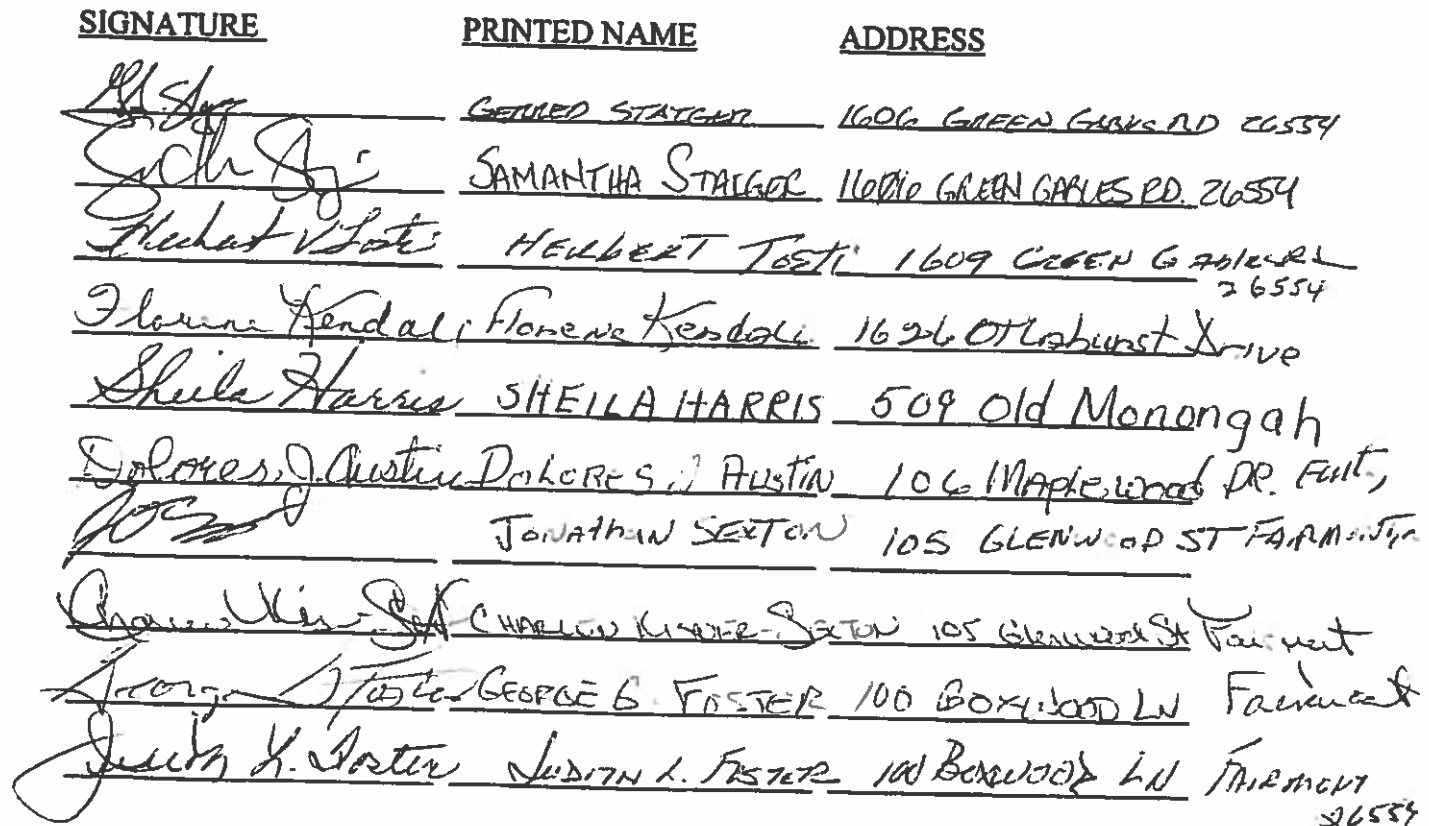 SIGNATURE PRINTED NAME ADDRESS
STAIGER 1606 GREEN RD 26554
SAMANTHA STAIGER GREEN GABLES RD. 26554
HERBERT TOSTI 1609 GREEN
26554
Kendall Florene Kendall 1626 Drive
Sheila Harris SHEILA HARRIS 509 Old Monongah
Dolores J. Austin DOLORES J AUSTIN 106 Maplewood DR.
JONATHAN SEXTON 105 GLENWOOD ST
SEXTON 105 Glenwood St
George Foster GEORGE G FOSTER 100 BOXWOOD LN Fairmont
Judith L. Foster JUDITH L. FOSTER 100 BOXWOOD LN FAIRMONT
26554